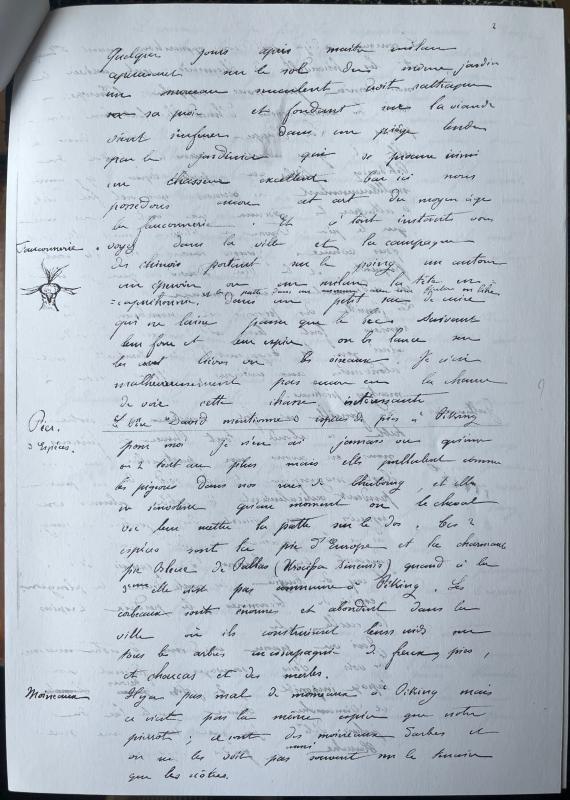 2
Quelques jours après maître milan
apercevant sur le sol du même jardin
un morceau succulent croit rattraper
sa proie et fondant sur la viande
vient s'enferrer dans un piège tendu
par le jardinier qui se prouve ainsi
un chasseur excellent car ici nous
possédons encore cet art du moyen âge
la fauconnerie. Et à tout instant vous
Fauconnerie.
voyez dans la ville et la campagne
des chinois portant sur le poing un autour
un épervier ou un milan la tête en-
=capuchonnée, dans un petit sac de cuir
et les pattes dans une
qui ne laisse passer que le bec. Suivant
leur force et leur espèce on les lance sur
les lièvres ou les oiseaux. Je n'ai
malheureusement pas encore eu la chance
de voir cette chasse intéressante
Pies.
3 Espèces.
Le Père David mentionne 3 espèces de pies à Péking
pour moi je n'en ai jamais vu qu'une
ou 2 tout au plus mais elles pullulent comme
les pigeons dans nos rues de Cherbourg, et elles
ne s'envolent qu'au moment où le cheval
va leur mettre la patte sur le dos. Ces 2
espèces sont la pie d'Europe et la charmante
pie bleue de Pallas (Urocissa Sinensis) quand à la
3ème elle n'est pas commune à Péking. Les
corbeaux sont énormes et abondent dans la
ville où ils construisent leurs nids sur
tous les arbres en compagnie de freux, pies,
et choucas et des merles.
Moineaux
Il y a pas mal de moineaux à Péking mais
ce n'est pas la même espèce que notre
pierrot; ce sont des moineaux Sarbes et
on ne les voit pas aussi souvent sur le terrain
que les nôtres.